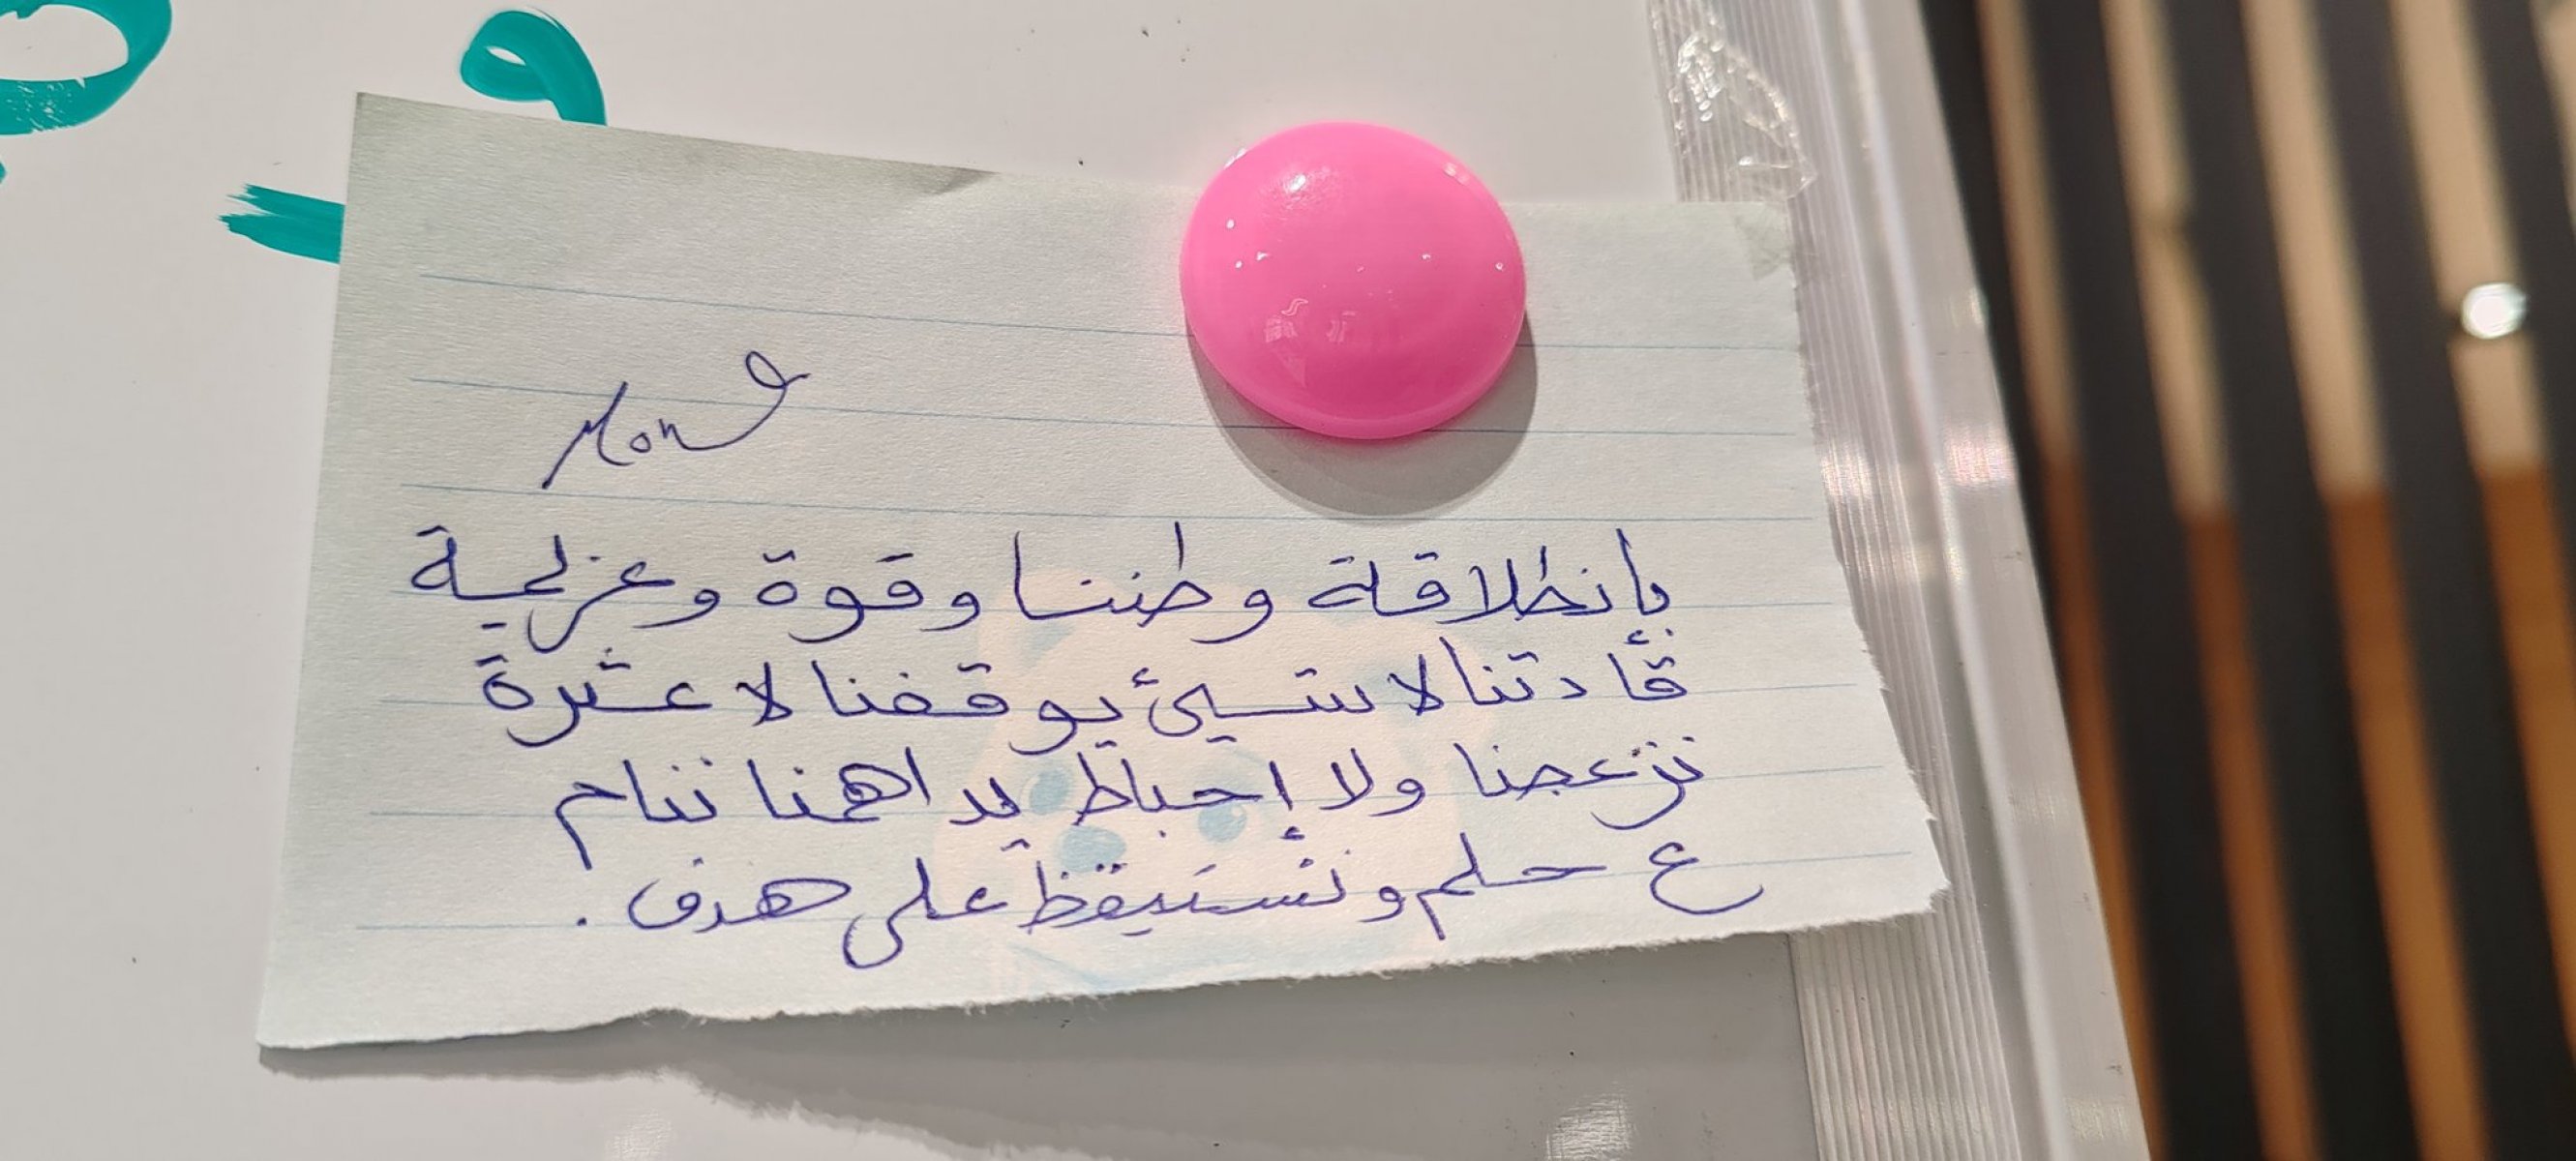 Mona
بإنطلاقة وطننا وقوة وعزيمة
قأدتنا لا شيئ يوقفنا لا عثرة
تزعجنا ولا إحباط يداهمنا ننام
ع حلم ونستيقظ على هدف .